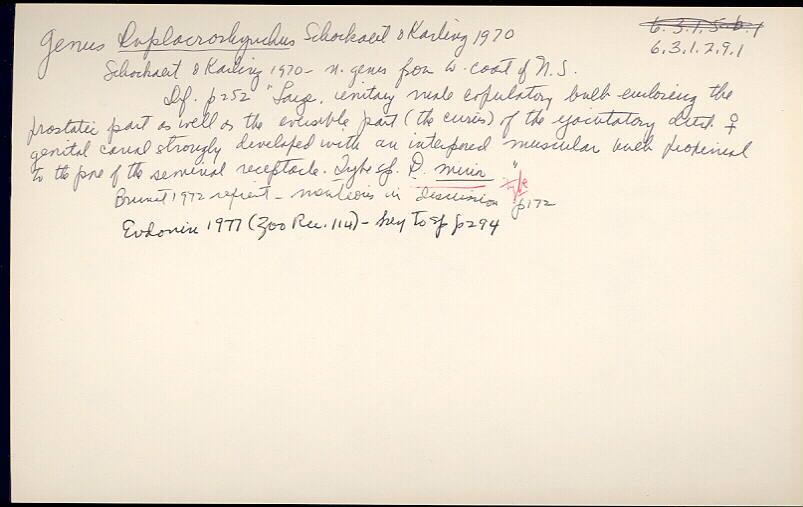 6.3.1.5.b.1
Genus Duplacrorhynchus Schockaert & Karling 1970
6.3.1.2.9.1
Schockaert & Karling 1970 - n. genus from w. coast of N.S.
Df. p252 "Large, unitary male copulatory bulb enclosing the
prostatic part as well as the eversible part (the cirrus) of the ejaculatory duct. ♀
genital canal strongly developed with an interposed muscular bulb proximal
to the pore of the seminal receptacle. Type sp. D. minor "
Brunet 1972 reprint - mentions in discussion p172
Evdonin 1977 (Zoo Rec. 114) - key to sp p294